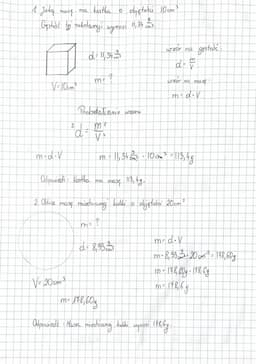 1. Jaką masę ma kostka o objętości 10cm³
Gęstość tej substancji wynosi 11,34 g/cm³
d = 11,34 g/cm³
wzór na gęstość
d = m/V
m = ?
wzór na masę
V = 10cm³
m = d·V
Przekształcanie wzoru
d = m/V
m = d·V
m = 11,34 g/cm³ · 10cm³ = 113,4g
Odpowiedź: kostka ma masę 113,4g.
2. Oblicz masę miedzianej kulki o objętości 20cm³
m = ?
d = 8,93 g/cm³
m = d·V
m = 8,93 g/cm³ · 20cm³ = 178,60g
V = 20cm³
m = 178,60g = 178,6g
m = 178,60g
m = 178,6g
Odpowiedź: Masa miedzianej kulki wynosi 178,6g.